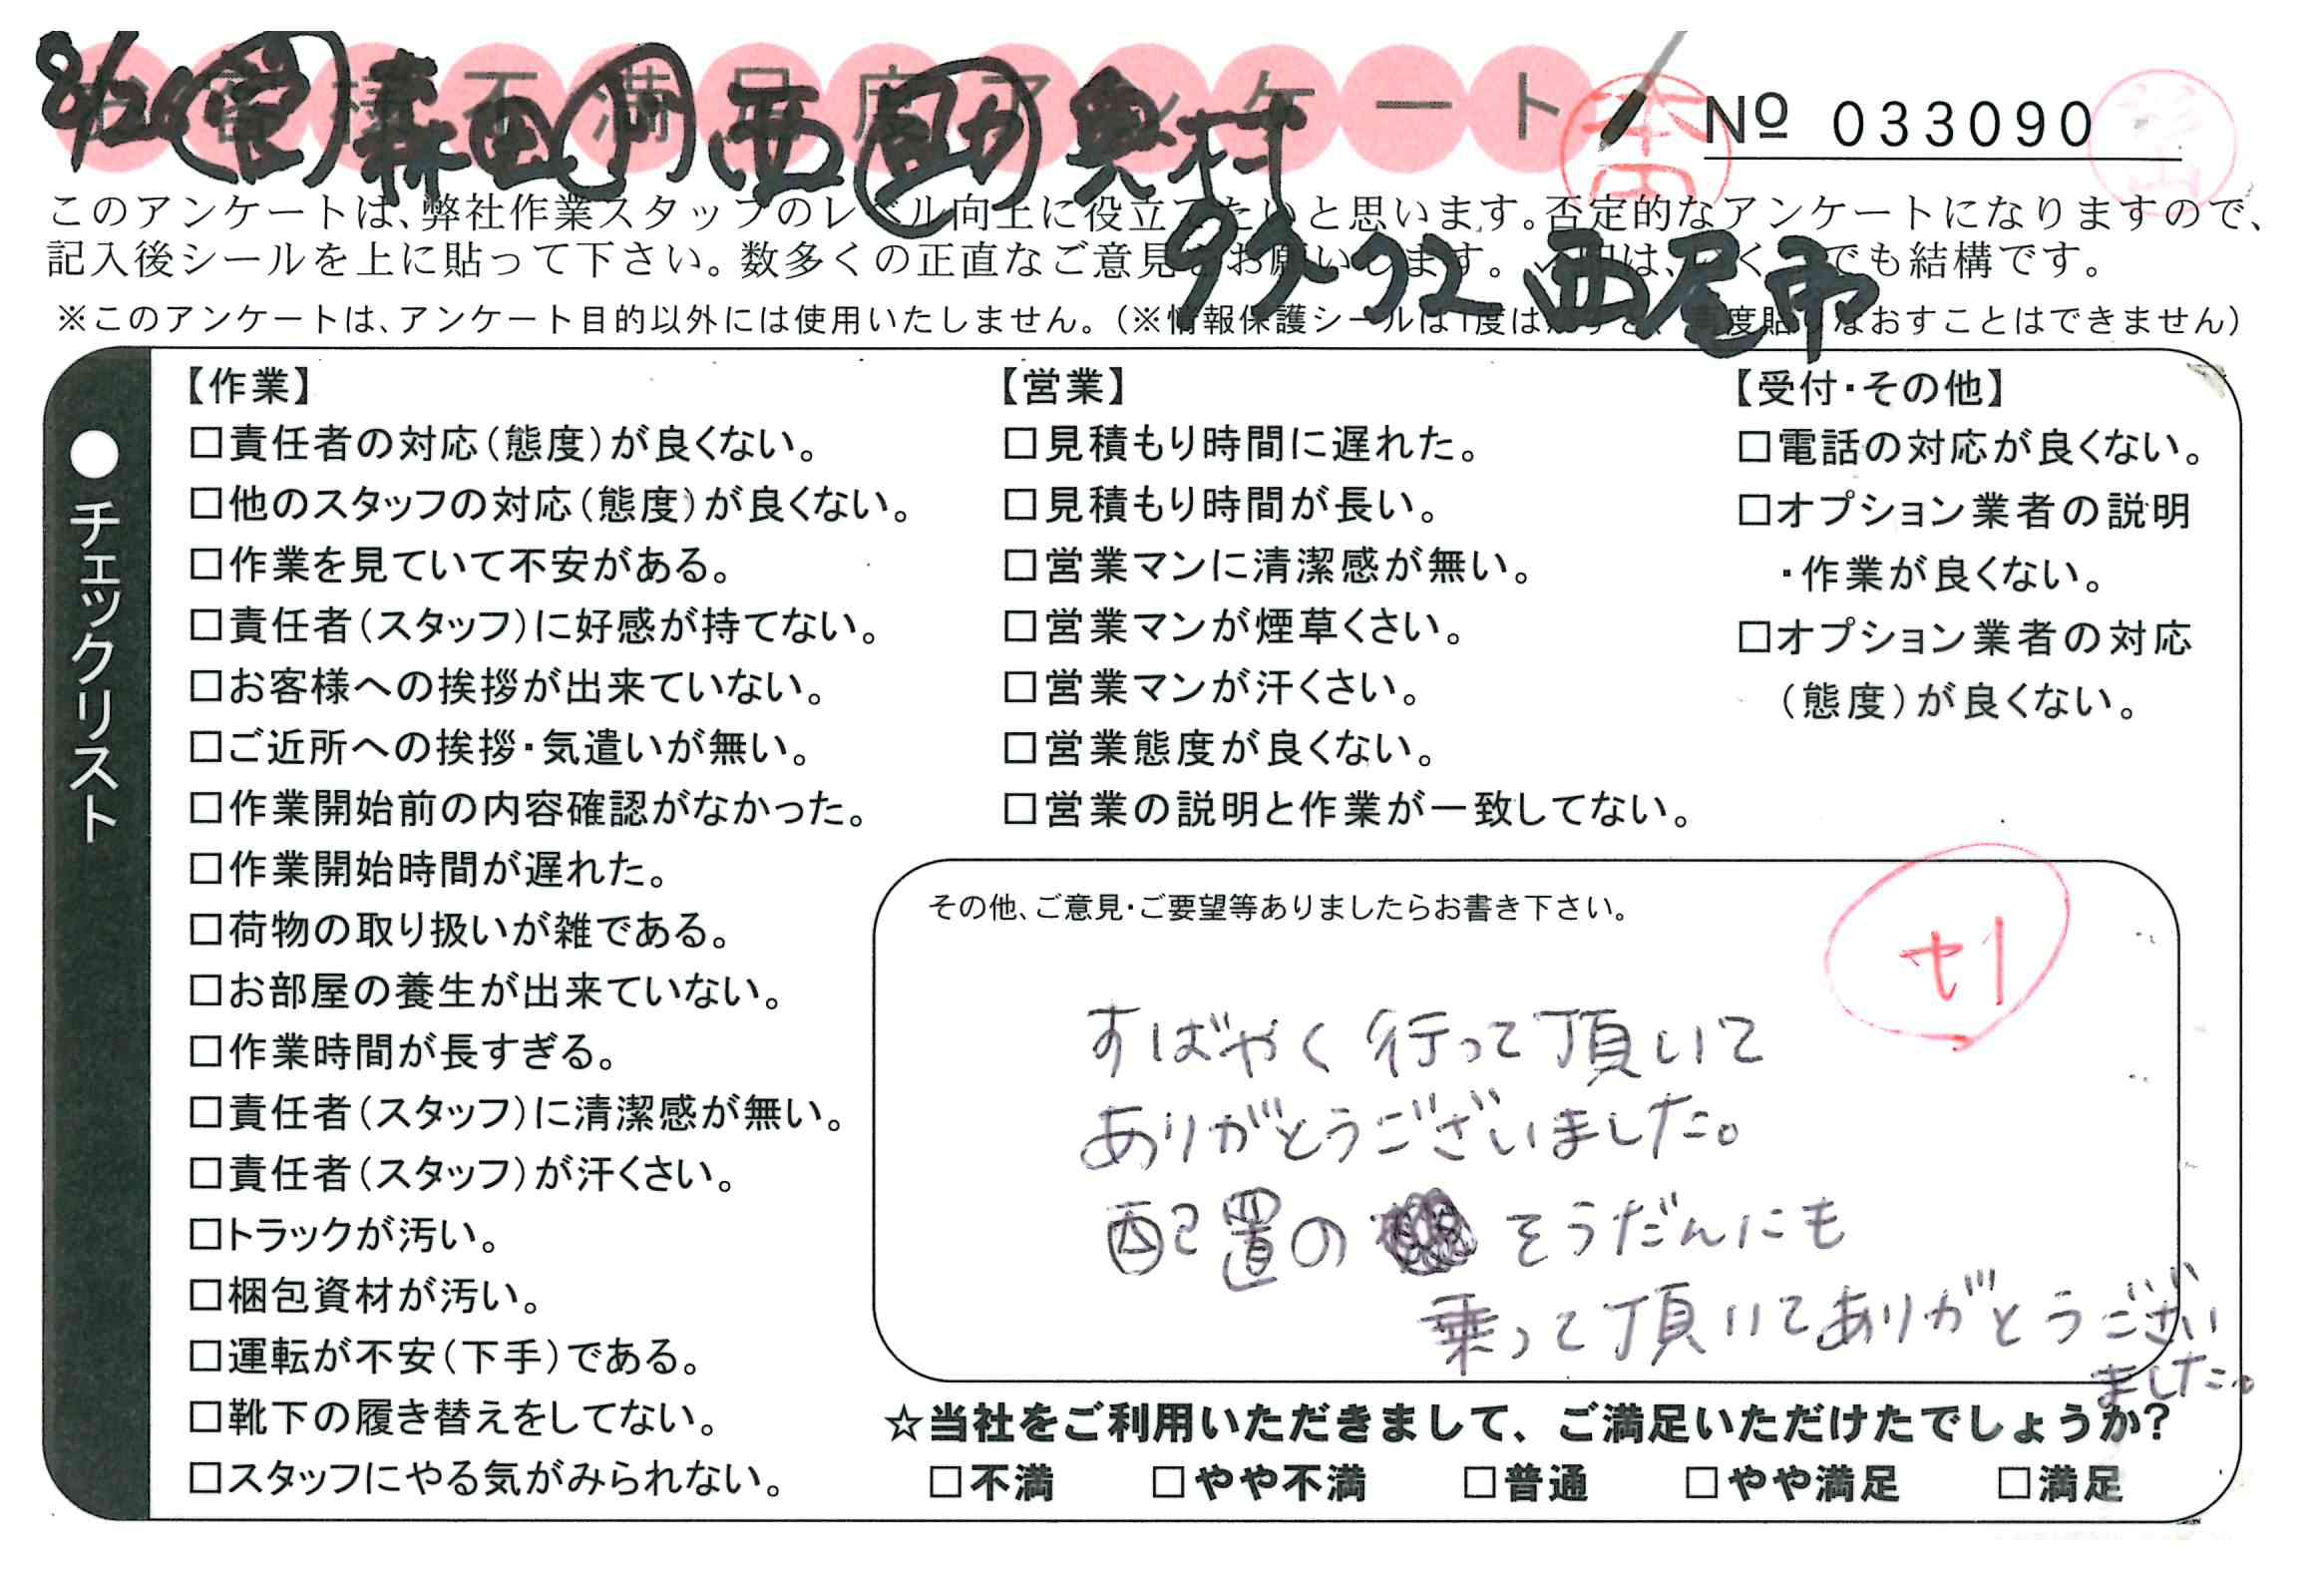 お客様不満足度アンケート
8/26 営 森田 西 奥村
№ 033090
93-72 西尾市
このアンケートは、弊社作業スタッフのレベル向上に役立てたいと思います。否定的なアンケートになりますので、
記入後シールを上に貼って下さい。数多くの正直なご意見をお願いします。
※このアンケートは、アンケート目的以外には使用いたしません。(※情報保護シールは1度はがすと、再度貼りなおすことはできません)
●チェックリスト
【作業】
□責任者の対応(態度)が良くない。
□他のスタッフの対応(態度)が良くない。
□作業を見ていて不安がある。
□責任者(スタッフ)に好感が持てない。
□お客様への挨拶が出来ていない。
□ご近所への挨拶・気遣いが無い。
□作業開始前の内容確認がなかった。
□作業開始時間が遅れた。
□荷物の取り扱いが雑である。
□お部屋の養生が出来ていない。
□作業時間が長すぎる。
□責任者(スタッフ)に清潔感が無い。
□責任者(スタッフ)が汗くさい。
□トラックが汚い。
□梱包資材が汚い。
□運転が不安(下手)である。
□靴下の履き替えをしてない。
□スタッフにやる気がみられない。
【営業】
□見積もり時間に遅れた。
□見積もり時間が長い。
□営業マンに清潔感が無い。
□営業マンが煙草くさい。
□営業マンが汗くさい。
□営業態度が良くない。
□営業の説明と作業が一致してない。
【受付・その他】
□電話の対応が良くない。
□オプション業者の説明
・作業が良くない。
□オプション業者の対応
(態度)が良くない。
その他、ご意見・ご要望等ありましたらお書き下さい。
すばやく行って頂いて
ありがとうございました。
配置の そうだんにも
乗って頂いてありがとうござい
ました。
☆当社をご利用いただきまして、ご満足いただけたでしょうか?
□不満 □やや不満 □普通 □やや満足 □満足